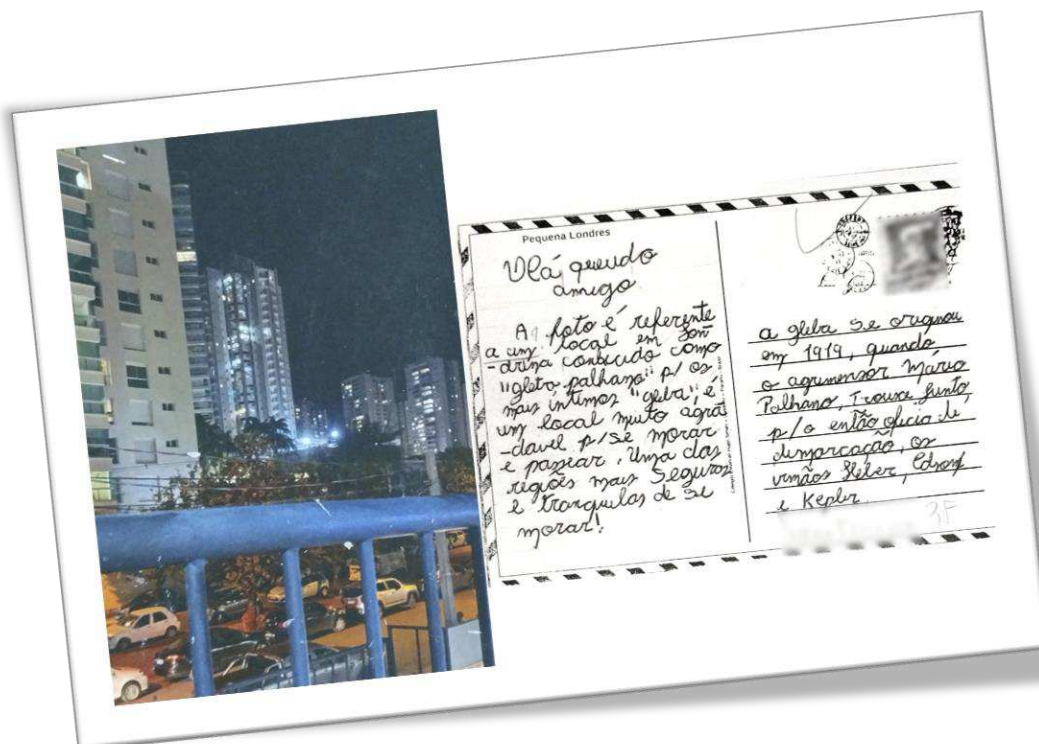 Pequena Londres
Olá querido
amigo
A foto é referente
a um local em Lon
-drina conhecido como
"gleba palhano" p/ os
mais íntimos "gleba", é
um local muito agrá
-davel p/se morar
e passear. Uma das
regiões mais Seguras
e tranquilas de se
morar!
a gleba se originou
em 1919, quando
o agrimensor Mário
Palhano, Trouxe junto
p/o então oficio de
demarcação, os
irmãos Heber, Edson
e Kepler
3F